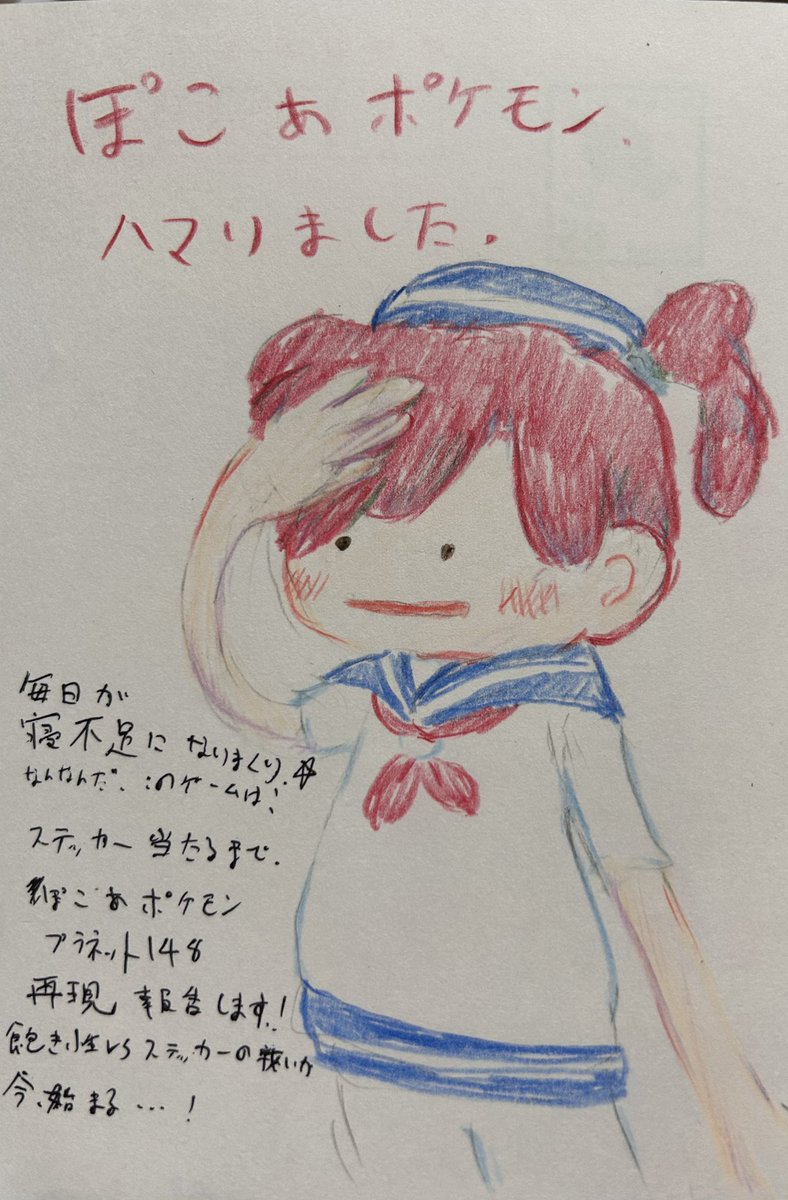 ぽこ あ ポケモン、
ハマりました。
毎日が
寝不足に なりまくり
なんなんだ、このゲームは!
ステッカー 当たるまで、
ぽこ あ ポケモン
プラネット148
再現 報告します!
飽き性 VS ステッカーの戦いが
今、始まる…!